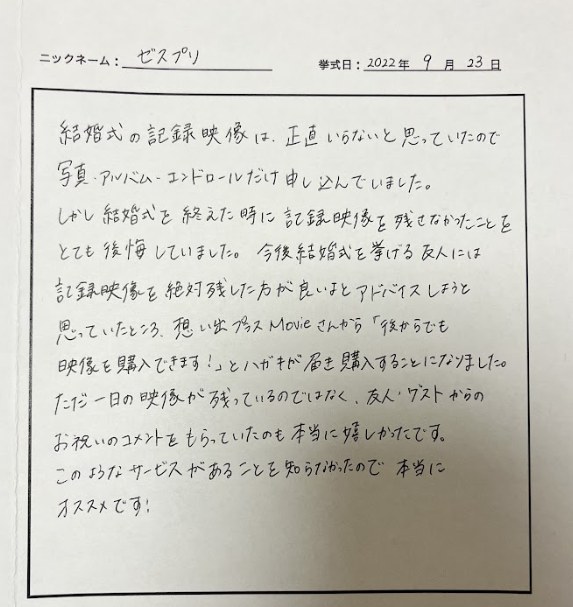 ニックネーム：ゼスプリ
挙式日：2022年 9月 23日
結婚式の記録映像は、正直いらないと思っていたので
写真・アルバム・エンドロールだけ申し込んでいました。
しかし結婚式を終えた時に記録映像を残さなかったことを
とても後悔していました。今後結婚式を挙げる友人には
記録映像を絶対残した方が良いよとアドバイスしようと
思っていたところ、想い出プラスMovieさんから「後からでも
映像を購入できます！」とハガキが届き購入することになりました。
ただ一日の映像が残っているのではなく、友人・ゲストからの
お祝いのコメントをもらっていたのも本当に嬉しかったです。
このようなサービスがあることを知らなかったので本当に
オススメです！